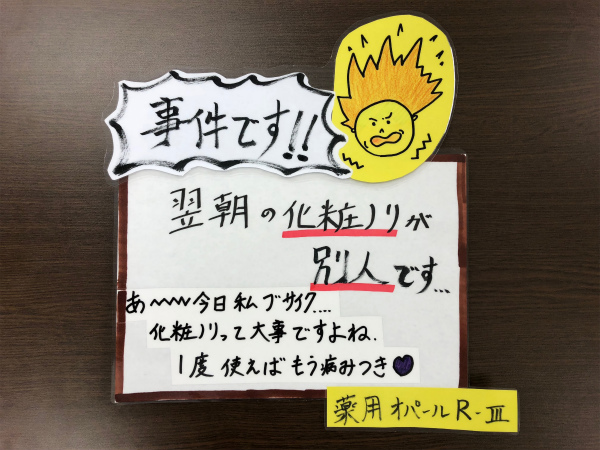 事件です!!
翌朝の化粧ノリが
別人です...
あ〜〜〜今日私ブサイク....
化粧ノリって大事ですよね.
1度使えばもう病みつき♥
薬用オパールR-Ⅲ